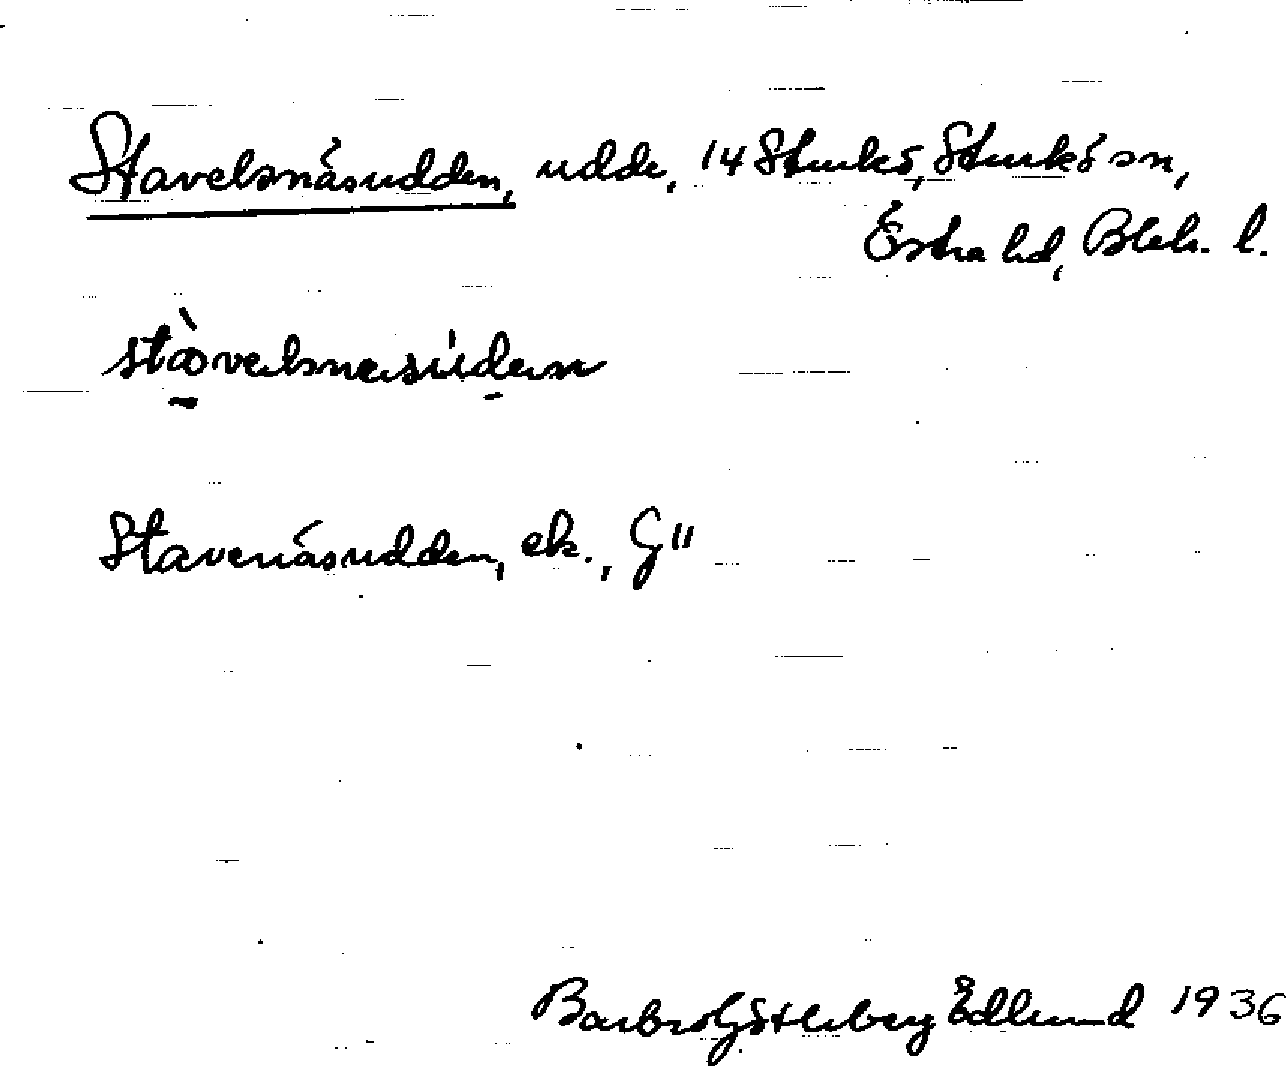 Stavelsnäsudden, udde, 14 Sturkö, Sturkö sn,
Östra hd, Blek. l.
stàvəlsnasúdən
Stavenäsudden, ek., G"
Barbro Göteberg Edlund 1936